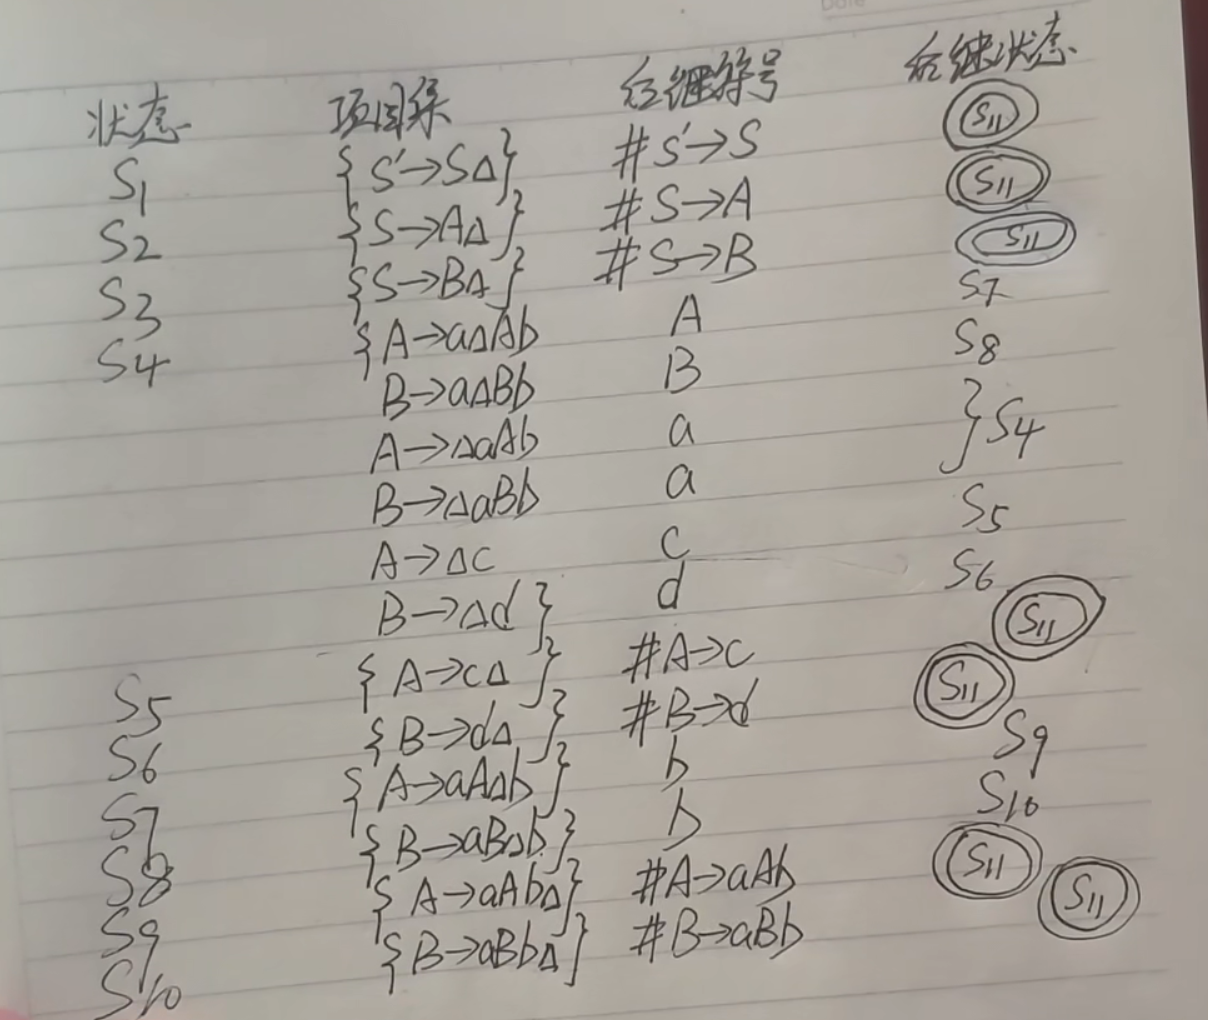 Date
状态 项目集 后继符号 后继状态
S1 {S'→SΔ} #S'→S S11
S2 {S→AΔ} #S→A S11
S3 {S→BΔ} #S→B S11
S4 {A→aΔAb A S7
B→aΔBb B S8
A→ΔaAb a } S4
B→ΔaBb a
A→Δc c S5
B→Δd} d S6
S5 {A→cΔ} #A→c S11
S6 {B→dΔ} #B→d S11
S7 {A→aAΔb} b S9
S8 {B→aBΔb} b S10
S9 {A→aAbΔ} #A→aAb S11
S10 {B→aBbΔ} #B→aBb S11